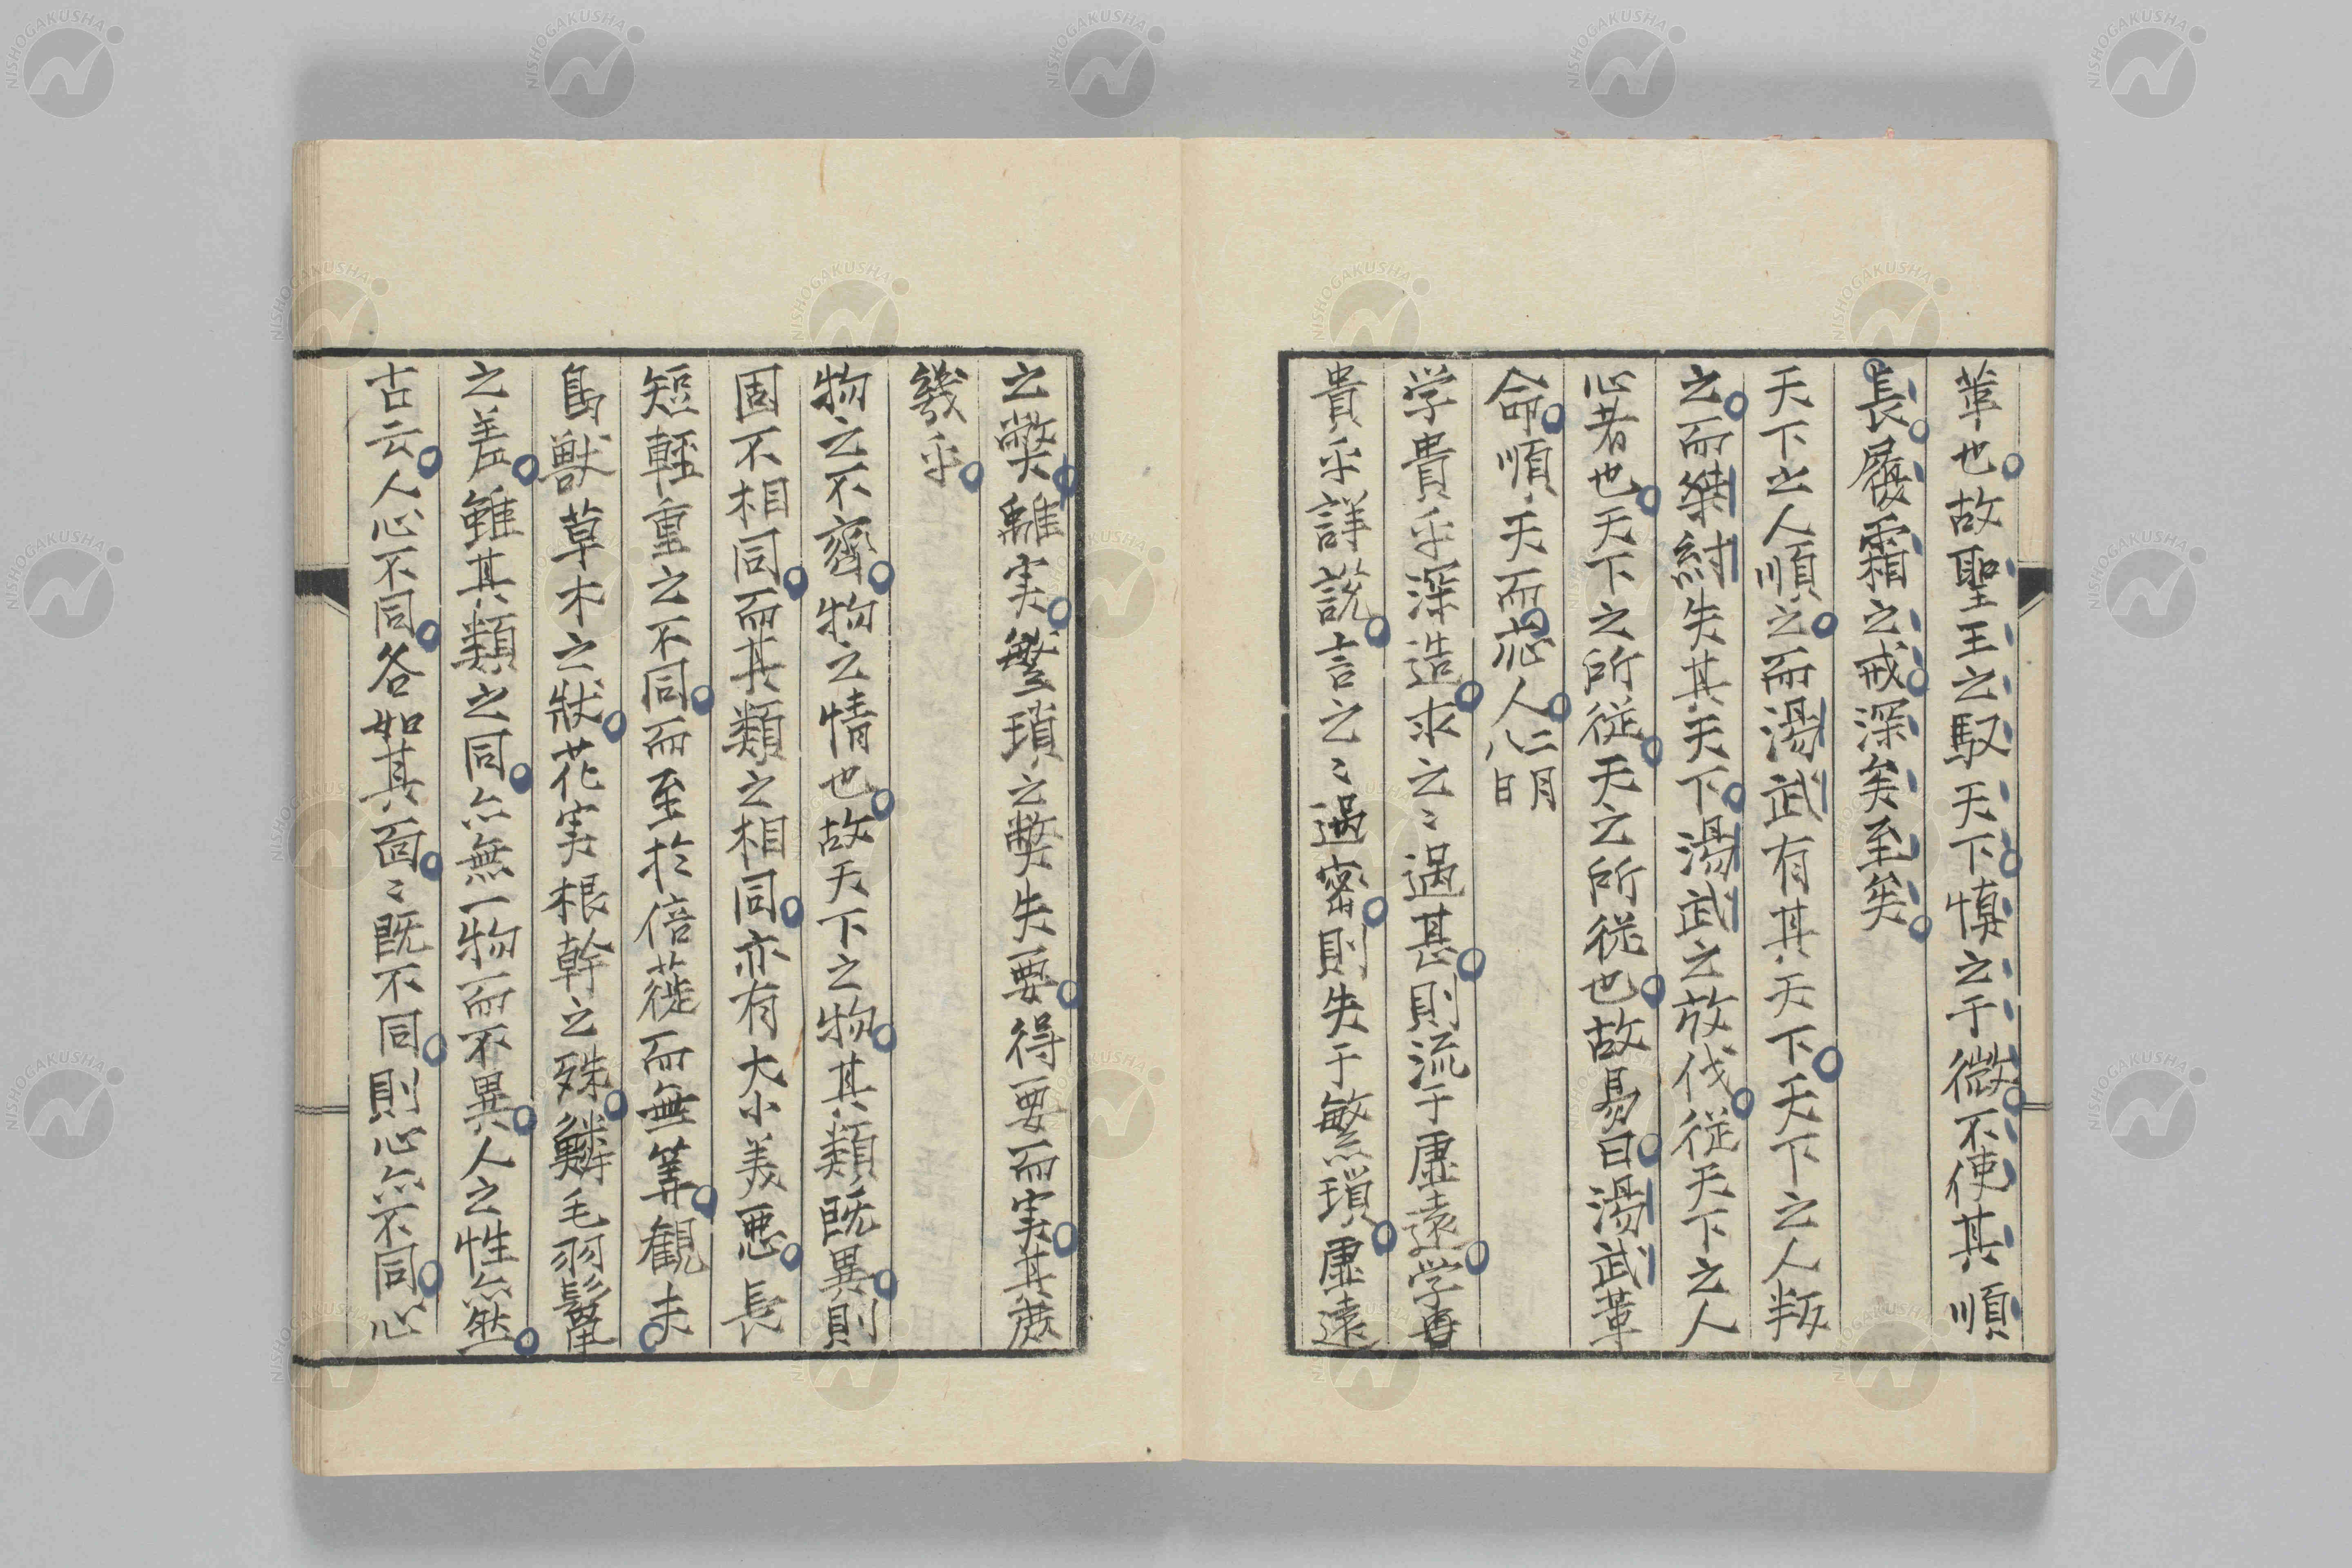 革也故聖王之馭天下慎之于微不使其順
長履霜之戒深矣至矣
天下之人順之而湯武有其天下天下之人叛
之而桀紂失其天下湯武之放伐従天下之人
心者也天下之所従天之所従也故易曰湯武革
命順天而応人 二月
八日 明
学貴乎深造求之〻過甚則流于虚遠学尊
貴乎詳説言之〻過密則失于繁瑣虚遠
之弊離実繁瑣之弊失要得要而実其庶
幾乎
物之不齊物之情也故天下之物其類既異則
固不相同而其類之相同亦有大小美悪長
短軽重之不同而至於倍蓰而無算観夫
鳥獣草木之状花実根幹之殊鱗毛羽鬣
之差雖其類之同亦無一物而不異人之性亦然
古云人心不同各如其面〻既不同則心亦不同心
NISHOGAKUSHA